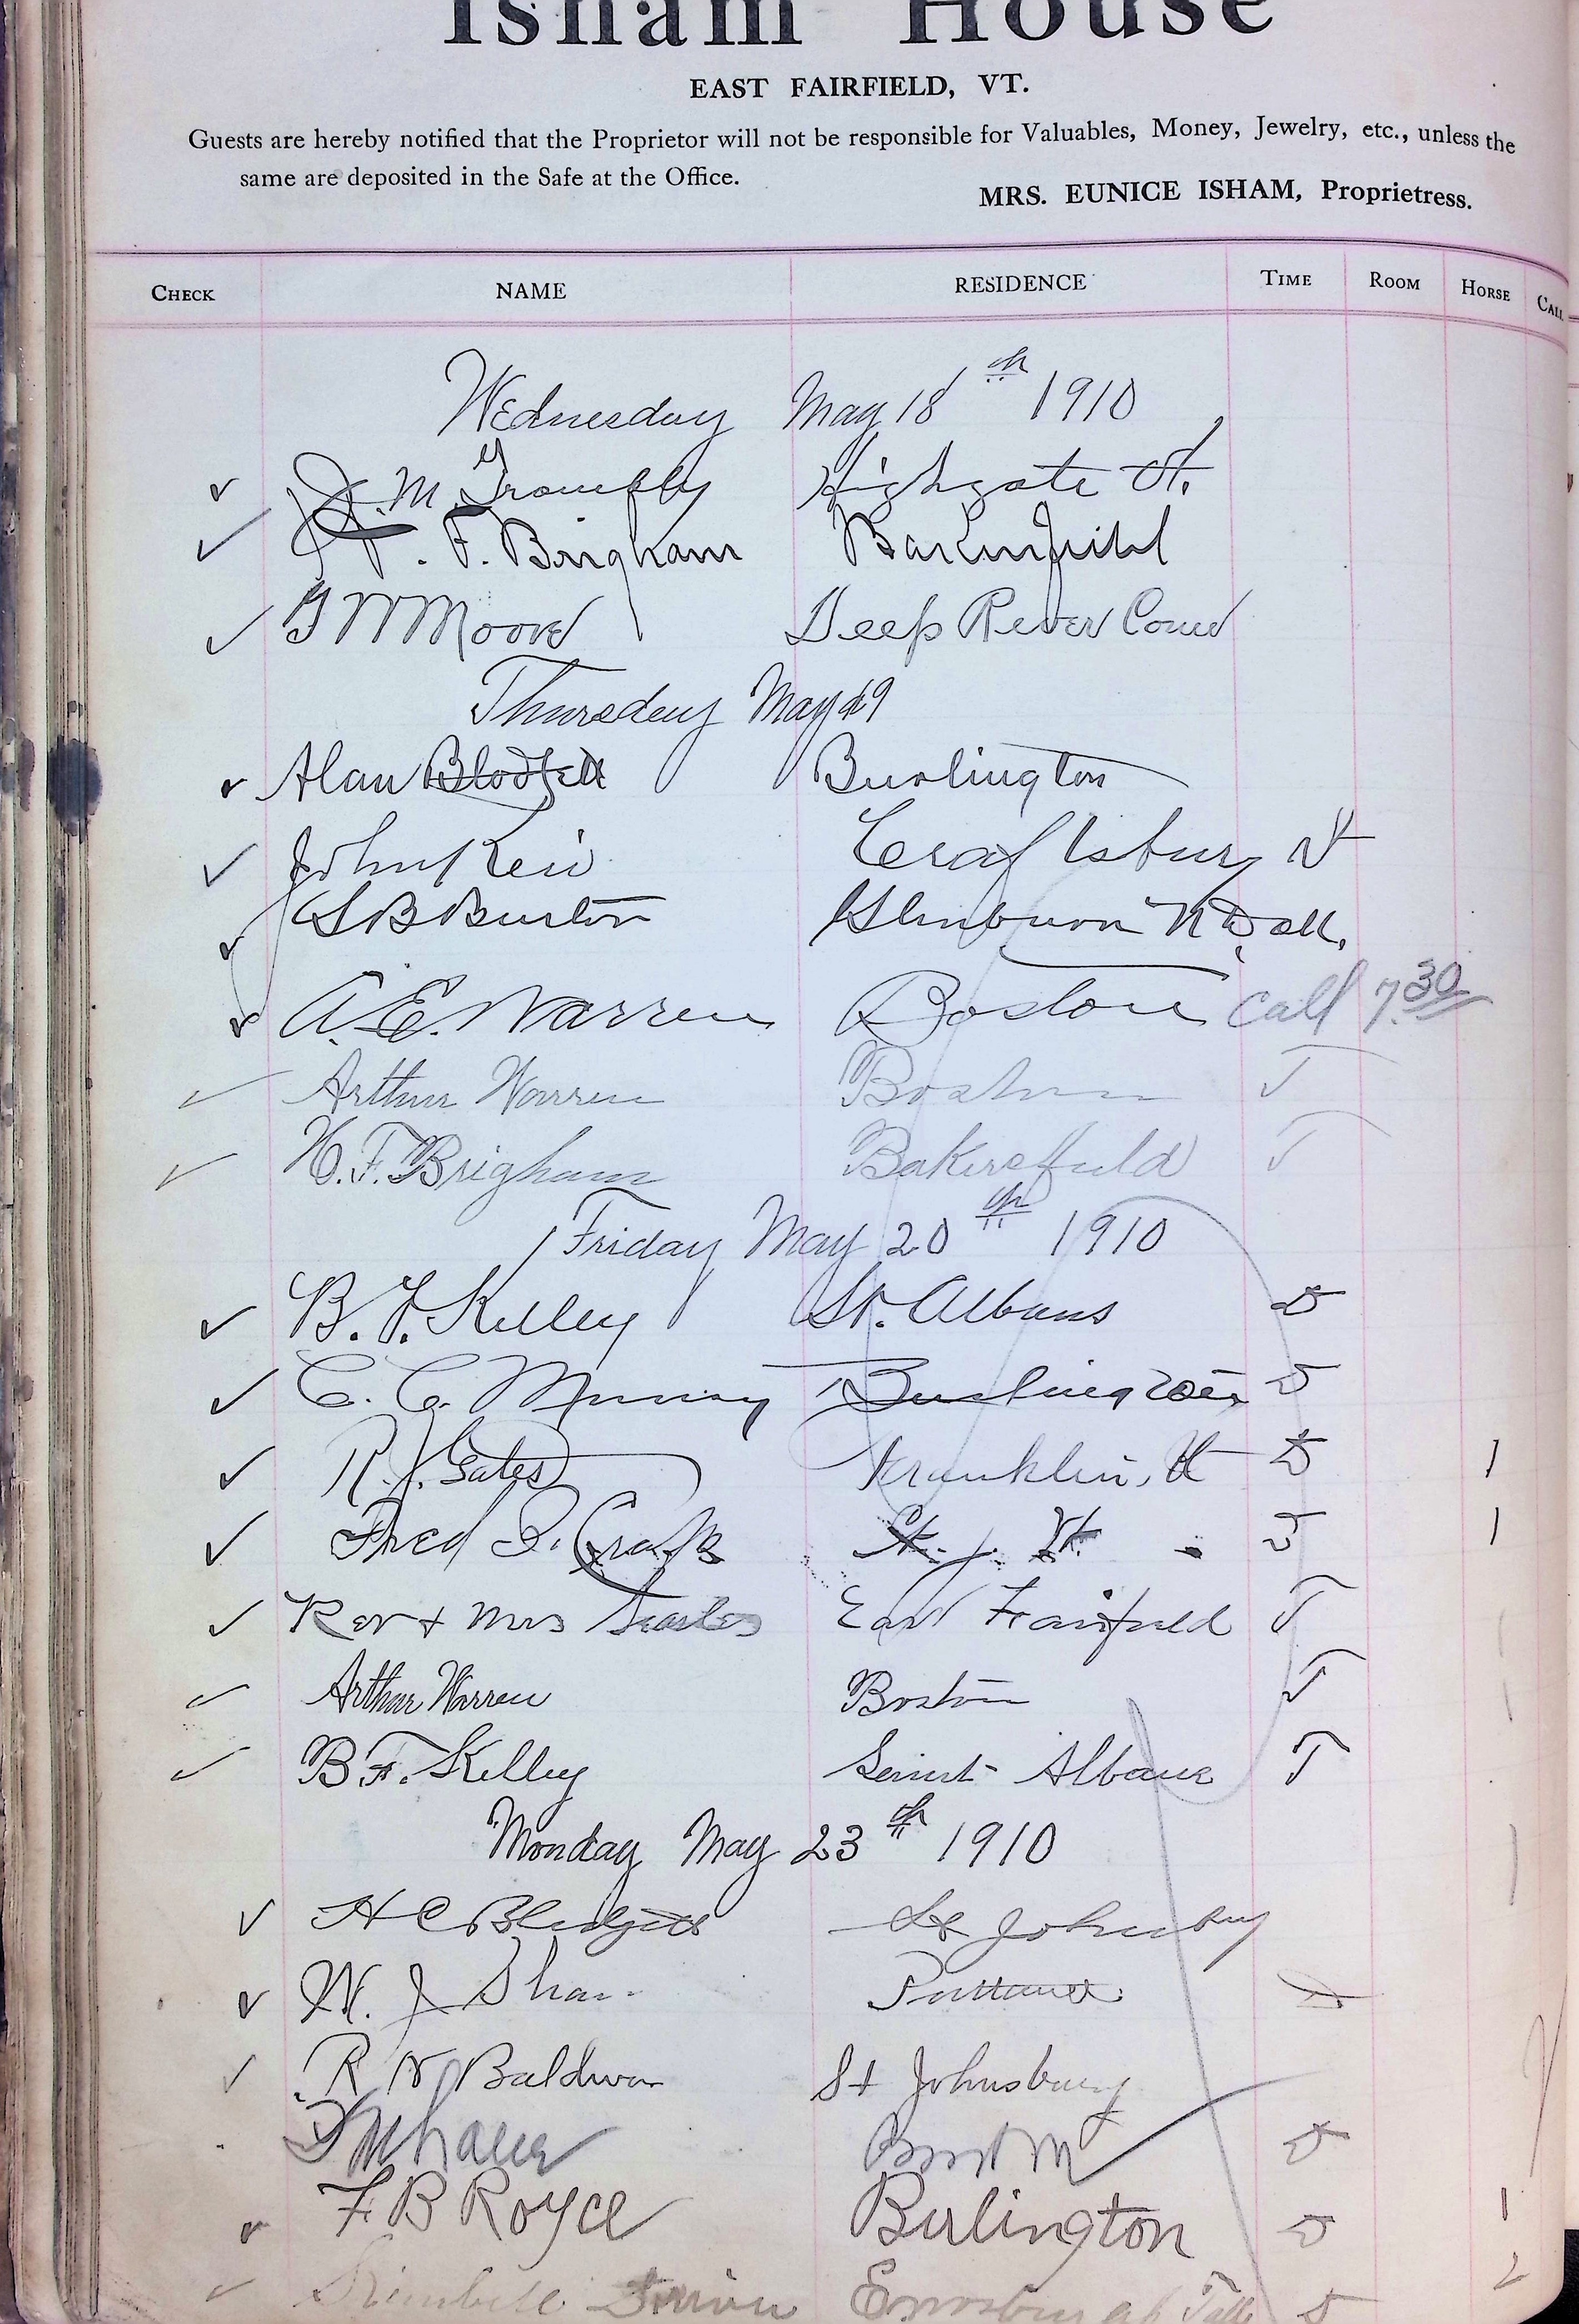 Isham House
EAST FAIRFIELD, VT.
Guests are hereby notified that the Proprietor will not be responsible for Valuables, Money, Jewelry, etc., unless the
same are deposited in the Safe at the Office.
MRS. EUNICE ISHAM, Proprietress.
CHECK NAME RESIDENCE TIME ROOM HORSE CALL
Wednesday May 18th 1910
J. M. Trombly Highgate Vt.
F. Brigham
G W Moore Deep River Conn
Thursday May 19
Alan Blodgett Burlington
John Keir Craftsbury Vt
S B Burton Glenburn N. Dak.
A. E. Warren Boston Call 7.30
Arthur Warren Boston T
H. F. Brigham Bakersfield T
Friday May 20th 1910
B. F. Kelley St. Albans D
C. C. Murray Burlington D
R. J. Gates Franklin, Vt D 1
Fred Craft St. J. Vt. D 1
Rev + Mrs East Fairfield T
Arthur Warren Boston T
B F. Kelley Saint Albans T
Monday May 23th 1910
H C Blodgett St Johnsbury
W. J Shaw
R N Baldwin St Johnsbury
Boston D
F. B Royce Burlington D 1
Kimball Enosburgh Falls D 2